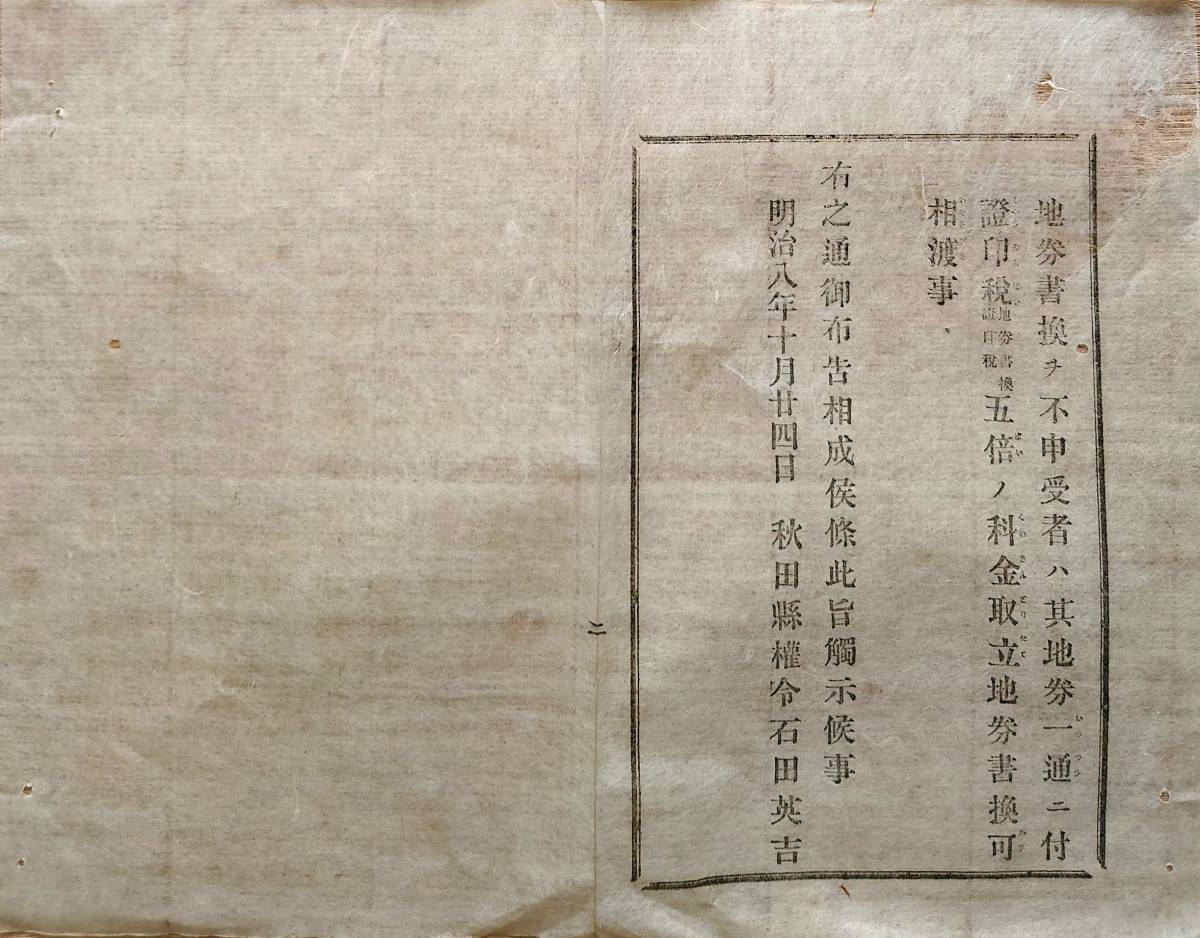 地券書換ヲ不申受者ハ其地券一通ニ付
證印税地券書換證印税五倍ノ科金取立地券書換可
相渡事
右之通御布告相成侯條此旨觸示候事
明治八年十月廿四日 秋田縣權令石田英吉
二